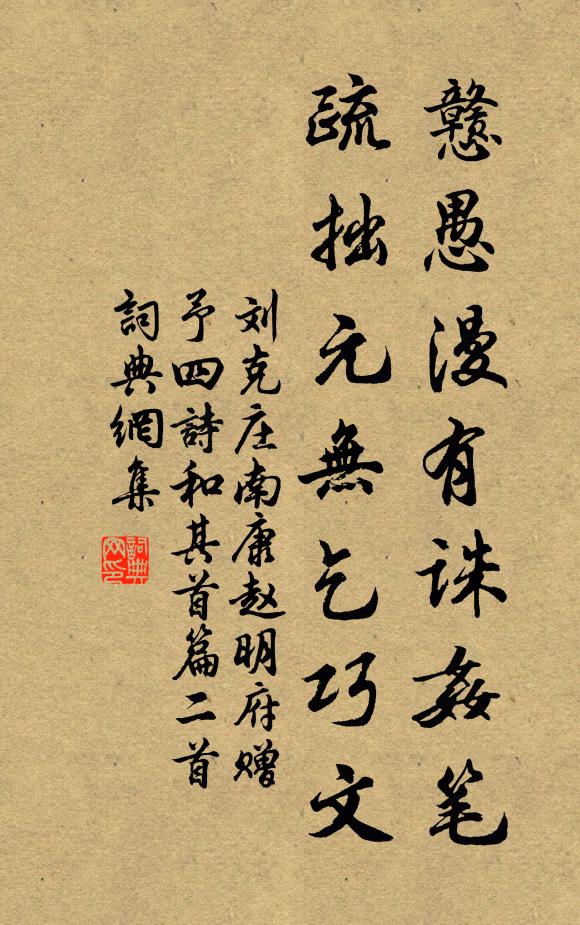 戆愚漫有诛姦笔
疏拙元無乞巧文
刘克庄南康赵明府赠
予四詩和其首篇二首
詞典網集
詞典
网印